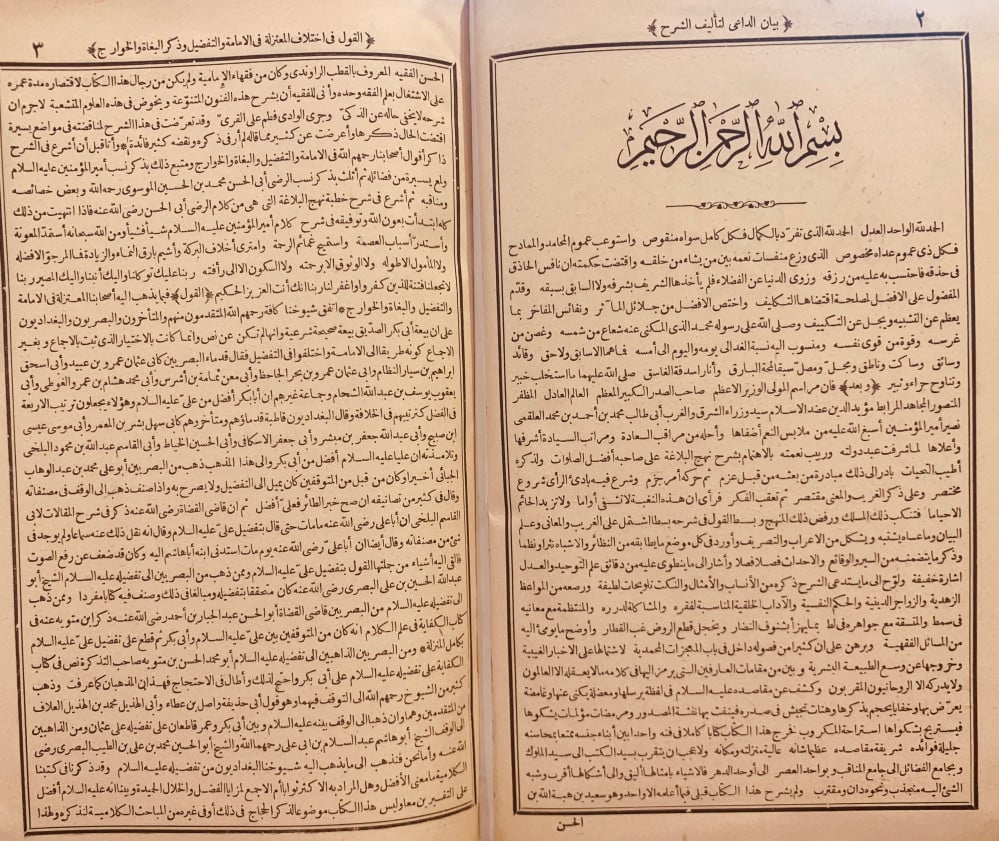 ٢
﴿ بيان الداعى لتأليف الشرح ﴾
بسم الله الرحمن الرحيم
الحمد لله الواحد العدل الحمد لله الذى تفرد بالكمال فكل كامل سواه منقوص واستوعب عموم المحامد والممادح
فكل ذى عموم عداه مخصوص الذى وزع منفسات نعمه بين من يشاء من خلقه واقتضت حكمته ان نافس الحاذق
فى حذقه فاحتسب به عليه من رزقه وزوى الدنيا عن الفضلاء فلم يأخذها الشريف بشرفه ولا السابق بسبقه وقدّم
المفضول على الافضل لمصلحة اقتضاها التكليف واختص الافضل من جلائل المآثر ونفائس المفاخر بما
يعظم عن التشبيه ويجل عن التكييف وصلى الله على رسوله محمد الذى المكنى عنه شعاع من شمسه وغصن من
غرسه وقوة من قوى نفسه ومنسوب اليه نسبة الغد الى يومه واليوم الى أمسه فما هما الا سابق ولاحق وقائد
وسائق وساكت وناطق ومجلّ ومصلّ سبقا لمحة البارق وأنارا سدفة الغاسق صلى الله عليهما ما استخلب خبير
وتناوح حراء وثبير ﴿ وبعد﴾ فان مراسم المولى الوزير الاعظم صاحب الصدر الكبير المعظم العالم العادل المظفر
المنصور المجاهد المرابط مؤيد الدين عضد الاسلام سيد وزراء الشرق والغرب أبى طالب محمد بن أحمد بن محمد العلقمى
نصير أمير المؤمنين أسبغ الله عليه من ملابس النعم أضفاها وأحله من مراقب السعادة ومراتب السيادة أشرفها
وأعلاها لما شرفت عبد دولته وربيب نعمته بالاهتمام بشرح نهج البلاغة على صاحبه أفضل الصلوات ولذكره
أطيب التحيات بادر الى ذلك مبادرة من بعثه من قبل عزم ثم حركه أمر جزم وشرع فيه بادئ الرأى شروع
مختصر وعلى ذكر الغريب والمعنى مقتصر ثم تعقب الفكر فرأى ان هذه النغبة لا تشفى أواما ولا تزيد الحائم
الاحياما فتنكب ذلك المسلك ورفض ذلك المنهج وبسط القول فى شرحه بسطا اشتمل على الغريب والمعانى وعلم
البيان وما عساه يشتبه ويشكل من الاعراب والتصريف وأورد فى كل موضع ما يطابقه من النظائر والاشباه نثرا ونظما
وذكر ما يتضمنه من السير والوقائع والاحداث فصلا فصلا وأشار الى ما ينطوى عليه من دقائق علم التوحيد والعدل
اشارة خفيفة ولوّح الى ما يستدعى الشرح ذكره من الأنساب والأمثال والنكت تلويحات لطيفة ورصعه من المواعظ
الزهدية والزواجر الدينية والحكم النفسية والآداب الخلقية المناسبة لفقره والمشاكلة لدرره والمنتظمة مع معانيه
فى سمط والمتسقة مع جواهره فى لط بما يهزأ بشنوف النضار ويخجل قطع الروض غب القطار وأوضح ما يومئ اليه
من المسائل الفقهية وبرهن على ان كثيرا من فصوله داخل فى باب المعجزات المحمدية لاشتمالها على الاخبار الغيبية
وخروجها عن وسع الطبيعة البشرية وبين من مقامات العارفين التى يرمز اليها فى كلامه ما لا يعقله الا العالمون
ولا يدركه الا الروحانيون المقربون وكشف عن مقاصده عليه السلام فى لفظة يرسلها ومعضلة يكنى عنها وغامضة
يعرّض بها وخفايا يجمجم بذكرها وهنات تجيش فى صدره فينفث بها نفثة المصدور ومرمضات مؤلمات يشكوها
فيستريح بشكواها استراحة المكروب فخرج هذا الكتاب كتابا كاملا فى فنه واحدا بين أبناء جنسه ممتعا بمحاسنه
جليلة فوائده شريفة مقاصده عظيما شانه عالية منزلته ومكانه ولا عجب ان يتقرب بسيد الكتب الى سيد الملوك
وبجامع الفضائل الى جامع المناقب وبواحد العصر الى أوحد الدهر فالاشياء بامثالها أليق والى أشكالها أقرب وشبه
الشئ اليه منجذب ونحوه دان ومقترب ولم يشرح هذا الكتاب قبلى فيما أعلمه الا واحد وهو سعيد بن هبة الله بن
الحسن
﴿ القول فى اختلاف المعتزلة فى الامامة والتفضيل وذكر البغاة والخوارج ﴾
٣
الحسن الفقيه المعروف بالقطب الراوندى وكان من فقهاء الإمامية ولم يكن من رجال هذا الكتاب لاقتصاره مدة عمره
على الاشتغال بعلم الفقه وحده وأنى للفقيه أن يشرح هذه الفنون المتنوّعة ويخوض فى هذه العلوم المتشعبة لاجرم ان
شرحه لا يخفى حاله عن الذكىّ وجرى الوادى فطم على القرىّ وقد تعرّضت فى هذا الشرح لمناقضته فى مواضع يسيرة
اقتضت الحال ذكرها وأعرضت عن كثير مما قاله لم أر فى ذكره ونقضه كثير فائدة * وأنا قبل أن أشرع فى الشرح
ذاكر أقوال أصحابنا رحمهم الله فى الامامة والتفضيل والبغاة والخوارج ومتبع ذلك بذكر نسب أمير المؤمنين عليه السلام
ولمع يسيرة من فضائله ثم أثلث بذكر نسب الرضى أبى الحسن محمد بن الحسين الموسوى رحمه الله وبعض خصائصه
ومناقبه ثم أشرع فى شرح خطبة نهج البلاغة التى هى من كلام الرضى أبى الحسن رضى الله عنه فاذا انتهيت من ذلك
كله ابتدأت بعون الله وتوفيقه فى شرح كلام أمير المؤمنين عليه السلام شيأ فشيأ ومن الله سبحانه أستمدّ المعونة
وأستدرّ أسباب العصمة وأستميح غمائم الرحمة وامترى أخلاف البركة وأشيم بارق النماء والزيادة فما المرجوّ الا فضله
ولا المأمول الا طوله ولا الوثوق الا برحمته ولا السكون الا الى رأفته ربنا عليك توكلنا واليك أنبنا واليك المصير ربنا
لا تجعلنا فتنة للذين كفروا واغفر لنا ربنا انك أنت العزيز الحكيم ﴿القول﴾ فيما يذهب اليه أصحابنا المعتزلة فى الامامة
والتفضيل والبغاة والخوارج * اتفق شيوخنا كافة رحمهم الله المتقدمون منهم والمتأخرون والبصريون والبغداديون
على ان بيعة أبى بكر الصدّيق بيعة صحيحة شرعية وانها لم تكن عن نص وانما كانت بالاختيار الذى ثبت بالاجماع وبغير
الاجماع كونه طريقا الى الامامة واختلفوا فى التفضيل فقال قدماء البصريين كأبى عثمان عمرو بن عبيد وأبى اسحق
ابراهيم بن سيار النظام وابى عثمان عمرو بن بحر الجاحظ وأبى معن ثمامة بن أشرس وأبى محمد هشام بن عمرو الفوطى وأبى
يعقوب يوسف بن عبد الله الشحام وجماعة غيرهم ان أبا بكر أفضل من علىّ عليه السلام وهؤلاء يجعلون ترتيب الاربعة
فى الفضل كترتيبهم فى الخلافة وقال البغداديون قاطبة قدماؤهم ومتأخروهم كأبى سهل بشر بن المعتمر وأبى موسى عيسى
ابن صبيح وأبى عبد الله جعفر بن مبشر وأبى جعفر الاسكافى وأبى الحسين الخياط وأبى القاسم عبد الله بن محمود البلخى
وتلامذته ان عليا عليه السلام أفضل من أبى بكر والى هذا المذهب ذهب من البصريين أبو على محمد بن عبد الوهاب
الجبائى أخيرا وكان من قبل من المتوقفين كان يميل الى التفضيل ولا يصرح به واذا صنف ذهب الى الوقف فى مصنفاته
وقال فى كثير من تصانيفه ان صح خبر الطائر فعلىّ أفضل ثم ان قاضى القضاة رضى الله عنه ذكر فى شرح المقالات لابى
القاسم البلخى ان أبا على رضى الله عنه ما مات حتى قال بتفضيل علىّ عليه السلام وقال انه نقل ذلك عنه سماعا ولم يوجد فى
شئ من مصنفاته وقال أيضا ان أبا على رضى الله عنه يوم مات استدنى ابنه أبا هاشم اليه وكان قد ضعف عن رفع الصوت
فالقى اليه أشياء من جملتها القول بتفضيل علىّ عليه السلام وممن ذهب من البصريين الى تفضيله عليه السلام الشيخ أبو
عبد الله الحسين بن على البصرى رضى الله عنه كان متحققا بتفضيله ومبالغا فى ذلك وصنف فيه كتابا مفردا وممن ذهب
الى تفضيله عليه السلام من البصريين قاضى القضاة أبو الحسن عبد الجبار بن أحمد رضى الله عنه ذكر ابن متويه عنه فى
كتاب الكفاية فى علم الكلام انه كان من المتوقفين بين علىّ عليه السلام وأبى بكر ثم قطع على تفضيل علىّ عليه السلام
بكامل المنزلة * ومن البصريين الذاهبين الى تفضيله عليه السلام أبو محمد الحسن بن متويه صاحب التذكرة نص فى كتاب
الكفاية على تفضيله عليه السلام على أبى بكر واحتج لذلك وأطال فى الاحتجاج فهذان المذهبان كما عرفت وذهب
كثير من الشيوخ رحمهم الله الى التوقف فيهما وهو قول أبى حذيفة واصل بن عطاء وأبى الهذيل محمد بن الهذيل العلاف
من المتقدمين وهما وان ذهبا الى الوقف بينه عليه السلام وبين أبى بكر وعمر قاطعان على تفضيله على عثمان ومن الذاهبين
الى الوقف الشيخ أبو هاشم عبد السلام بن ابى على رحمهما الله والشيخ أبو الحسين محمد بن على بن الطيب البصرى رضى
الله عنه وأما نحن فنذهب الى ما يذهب اليه شيوخنا البغداديون من تفضيله عليه السلام وقد ذكرنا فى كتبنا
الكلامية ما معنى الأفضل وهل المراد به الاكثر ثوابا أم الاجمع لمزايا الفضل والخلال الحميدة وبينا انه عليه السلام أفضل
على التفسيرين معا وليس هذا الكتاب موضوعا لذكر الحجاج فى ذلك أو فى غيره من المباحث الكلامية لنذكره ولهذا